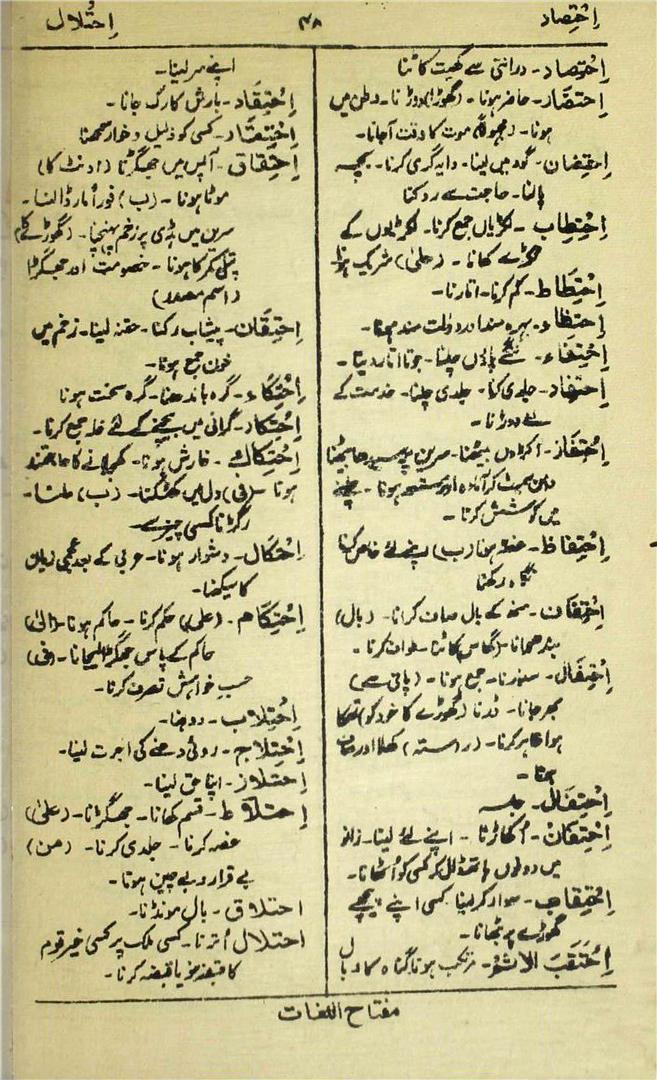 اِحْتِصاد
۴۸
اِحتُلال
اِحْتِصاد - درانتی سے کھیت کاٹنا
اِحتضَار - حاضر ہونا - (گھوڑا) دوڑنا - وطن میں
ہونا - (مجہولاً) موت کا وقت آجانا -
اِحتِضان - گود میں لینا - دایہ گری کرنا - بچہ
پالنا - حاجت سے روکنا
اِحْتِطاب - لکڑیاں جمع کرنا - لکڑیوں کے
کھانا - (علیٰ) شریک ہونا
اِحْتِطَاط - کم کرنا - اتارنا -
اِحتِظَاء - بہرہ مند اور دولت مند ہونا -
اِحْتِفَاء - ننگے پاؤں چلنا - جوتا اتار دینا -
اِحتفاد - جلدی کرنا - جلدی چلنا - خدمت کے
لئے دوڑنا -
اِحْتِفَاز - اکڑوں بیٹھنا - سرین پر سیدھا بیٹھنا
آمادہ اور ہونا -
میں کوشش کرنا -
اِحْتِفاظ - غصہ ہونا (ب) اپنے لئے خاص کرنا
نگاہ رکھنا
اِحْتِفَان - منھ کے بال صاف کرانا - (بال)
بندھوانا - (گھاس) کاٹنا
اِحْتِفَال - سنورنا - جمع ہونا - (پانی سے)
بھر جانا - (گھوڑے کا خود کو) تھکا
ہوا ظاہر کرنا - (راستہ) کھلا اور صاف
ہونا -
اِحْتِفَال - جلسہ
اِحْتِفَان - اُکھاڑنا - اپنے لئے لینا - زانو
میں دونوں ہاتھ ڈال کر کسی کو اٹھانا -
اِحْتِقَاب - سوار کر لینا کسی اپنے پیچھے
گھوڑے پر بٹھانا -
اِحْتَقَبَ الاِثْمَ - مرتکب ہونا گناہ کا وبال
اپنے سر لینا -
اِحْتِقَاد - بارش کا رک جانا -
اِحْتِقَار - کسی کو ذلیل و خوار سمجھنا
اِحْتِقاق - آپس میں جھگڑنا (اونٹ کا)
موٹا ہونا - (ب) فوراً مار ڈالنا -
سرین میں ہڈی پر زخم پہنچنا - (گھوڑے کا)
پتلی کمر کا ہونا - خصومت اور جھگڑا
(اسم مصدر)
اِحتِقَان - پیشاب رکنا - حقنہ لینا - زخم میں
خون جمع ہونا -
اِحْتِكَاء - گرہ باندھنا - گرہ سخت ہونا
اِحْتِکار - گرانی میں بیچنے کے لئے غلہ جمع کرنا -
اِحْتِكاك - خارش ہونا - کھجلانے کا حاجتمند
ہونا - (فی) دل میں کھٹکنا - (ب) ملنا -
رگڑنا کسی چیز سے
اِحتکال - دشوار ہونا - عربی کے بعد عجمی زبان
کا سیکھنا -
اِحْتِكَام - (علی) حکم کرنا - حاکم ہونا - (الیٰ)
حاکم کے پاس جھگڑا لیجانا - (فی)
حسبِ خواہش تصرف کرنا -
اِحْتِلاب - دوہنا -
اِحْتِلاج - روئی دھننے کی اجرت لینا -
اِحتلاز - اپنا حق لینا -
اِحتلاط - قسم کھانا - جھگڑنا - (علیٰ)
غصہ کرنا - جلدی کرنا - (من)
بے قرار و بے چین ہونا -
احتلاق - بال مونڈنا -
احتلال اُترنا - کسی ملک پر کسی غیر قوم
کا قبضہ ہو یا قبضہ کرنا -
مفتاح اللغات